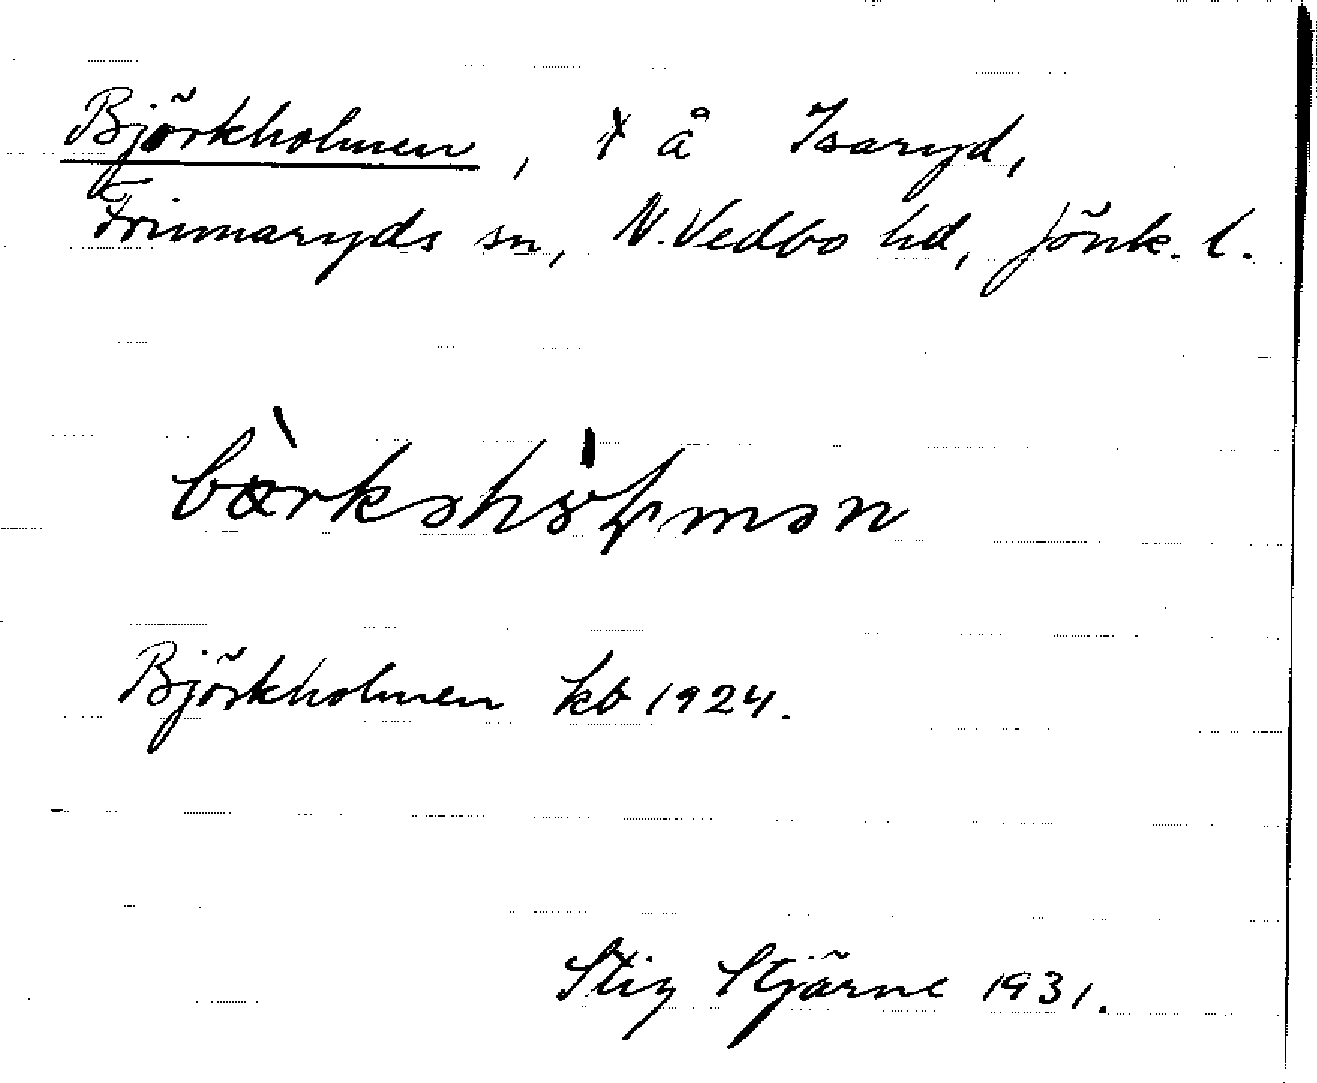 Björkholmen, ꝉ å Isaryd,
Frinnaryds sn, N. Vedbo hd, Jönk. l.
Björkholmen kb 1924.
Stig Stjärne 1931.